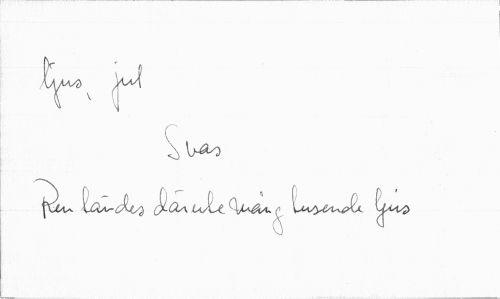 ljus, jul
Svas
Ren tändes därute mång tusende ljus